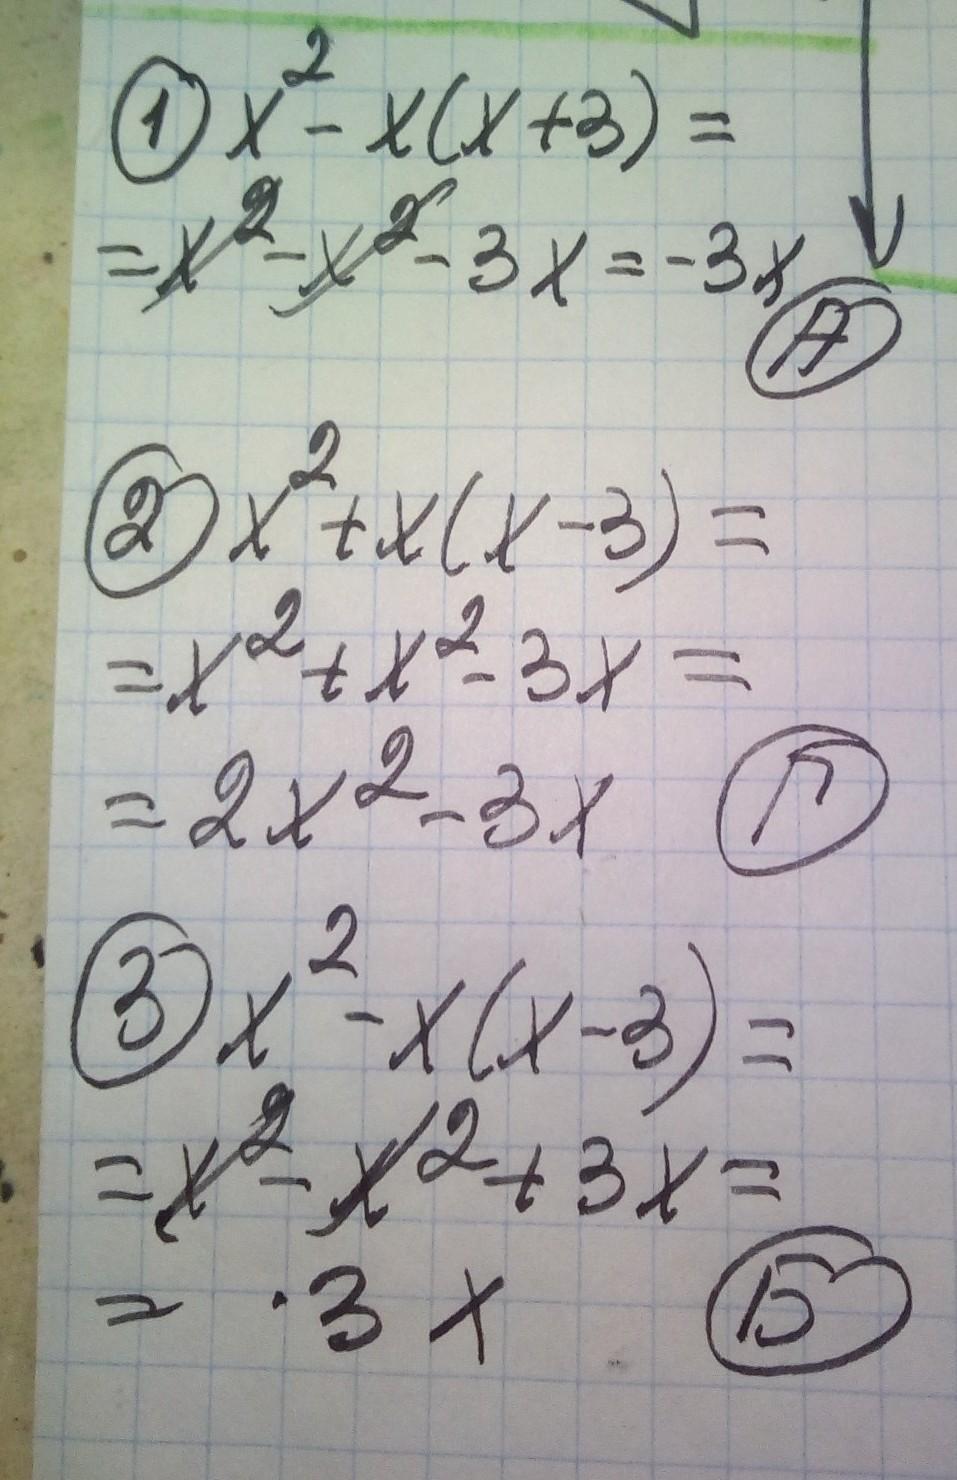 ① x² - x(x+3) =
= x² - x² - 3x = -3x
А
② x² + x(x-3) =
= x² + x² - 3x =
= 2x² - 3x Г
③ x² - x(x-3) =
= x² - x² + 3x =
= · 3x Б